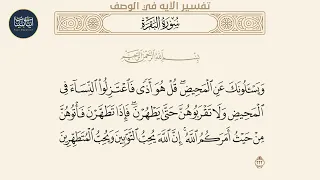 تفسير الآيه في الوصف
سُورَةُ البَقَرَةِ
بِسْمِ اللَّهِ الرَّحْمَٰنِ الرَّحِيمِ
وَيَسْـَٔلُونَكَ عَنِ ٱلْمَحِيضِ ۖ قُلْ هُوَ أَذًى فَٱعْتَزِلُوا۟ ٱلنِّسَآءَ فِى
ٱلْمَحِيضِ وَلَا تَقْرَبُوهُنَّ حَتَّىٰ يَطْهُرْنَ ۖ فَإِذَا تَطَهَّرْنَ فَأْتُوهُنَّ
مِنْ حَيْثُ أَمَرَكُمُ ٱللَّهُ ۚ إِنَّ ٱللَّهَ يُحِبُّ ٱلتَّوَّٰبِينَ وَيُحِبُّ ٱلْمُتَطَهِّرِينَ
٢٢٢